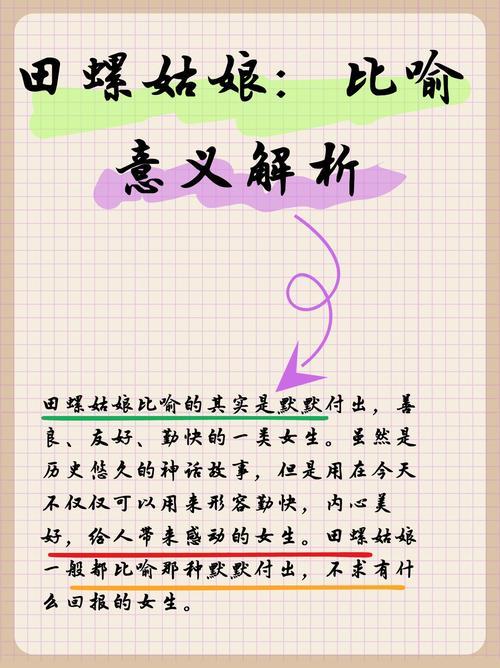 田螺姑娘：比喻
意义解析
田螺姑娘比喻的其实是默默付出，善
良、友好、勤快的一类女生。虽然是
历史悠久的神话故事，但是用在今天
不仅仅可以用来形容勤快，内心美
好，给人带来感动的女生。田螺姑娘
一般都比喻那种默默付出，不求有什
么回报的女生。